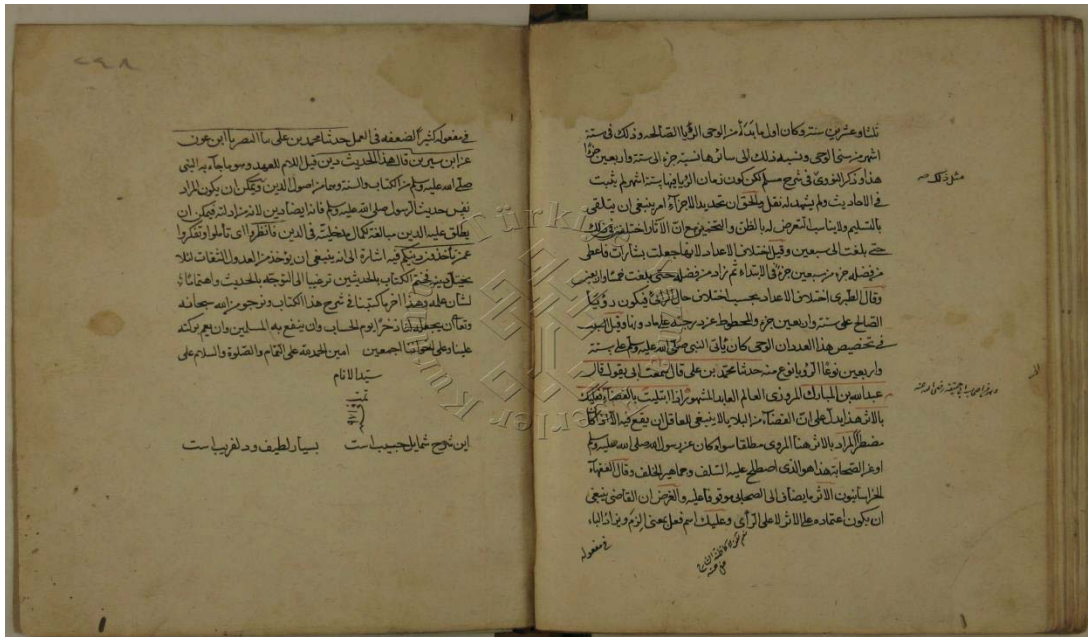 ثلثا وعشرين سنة وكان اول ما بدئ من الوحى الرؤيا الصالحه وذلك فى ستة
اشهر من سنى الوحى ونسبة ذلك الى سائرها نسبة جزء الى ستة واربعين جزءا
هذا وذكر النووى فى شرح مسلم لكن كون زمان الرؤيا فيها ستة اشهر لم يثبت
فى الاحاديث ولم يشهد له نقل والحق ان تحديد الاجزاء امر ينبغى ان يتلقى
بالتسليم ولا يناسب التعرض له بالظن والتخمين مع ان الآثار اختلف فى ذلك
حتى بلغت الى سبعين وقيل اختلاف الاعداد لانها جعلت بشارات فاعطى
من فضله جزء من سبعين جزء فى الابتداء ثم زاد من فضله حتى بلغت خمسا واربعين
وقال الطبرى اختلاف الاعداد بحسب اختلاف حال الرائى فيكون رؤيا
الصالح على ستة واربعين جزء والمحطوط عن درجته على ما دونها وقيل السبب
فى تخصيص هذا العدد ان الوحى كان يأتى النبى صلى الله عليه وسلم على ستة
واربعين نوعا الرؤيا نوع منه حدثنا محمد بن على قال سمعت ابى يقول قال
عبد الله بن المبارك المروزى العالم العابد المشهور اذا ابتليت بالقضاء فعليك
بالاثر هذا يدل على ان القضاء من البلايا لا ينبغى للعاقل ان يقع فيه الا اذا كان
مضطرا المراد بالاثر هنا المروى مطلقا سواء كان عن رسول الله صلى الله عليه وسلم
او عن الصحابة هذا هو الذى اصطلح عليه السلف وجماهير الخلف وقال الفقهاء
الخراسانيون الاثر ما يضاف الى الصحابى موقوفا عليه والغرض ان القاضى ينبغى
ان يكون اعتماده على الاثر لا على الرأى وعليك اسم فعل بمعنى الزم ويزاد الباء
فى مفعوله
فى مفعوله كثيرا لضعفه فى العمل حدثنا محمد بن على نا النضر نا ابن عون
عن ابن سيرين قال هذا الحديث دين قيل اللام للعهد وهو ما جاء به النبى
صلى الله عليه وسلم من الكتاب والسنة وهما من اصول الدين ويمكن ان يكون المراد
نفس حديث الرسول صلى الله عليه وسلم فانه ايضا دين لانه فيمكن ان
يطلق عليه الدين مبالغة لكمال مدخليته فى الدين فانظروا اى تأملوا وتفكروا
عمن تأخذون دينكم فيه اشارة الى انه ينبغى ان يؤخذ من العدول الثقات لئلا
يختل دينه فختم الكتاب بالحديثين ترغيبا الى التوجه بالحديث واهتماما
لشان علمه وهذا آخر ما كتبنا فى شرح هذا الكتاب ونرجو من الله سبحانه
وتعالى ان يجعله لنا ذخرا يوم الحساب وان ينفع به المسلمين وان يعم بركته
علينا وعلى اخواننا اجمعين امين الحمد لله على التمام والصلوة والسلام على
سيد الانام
این شرح شمایل حبیب است بسیار لطیف و دلفریب است